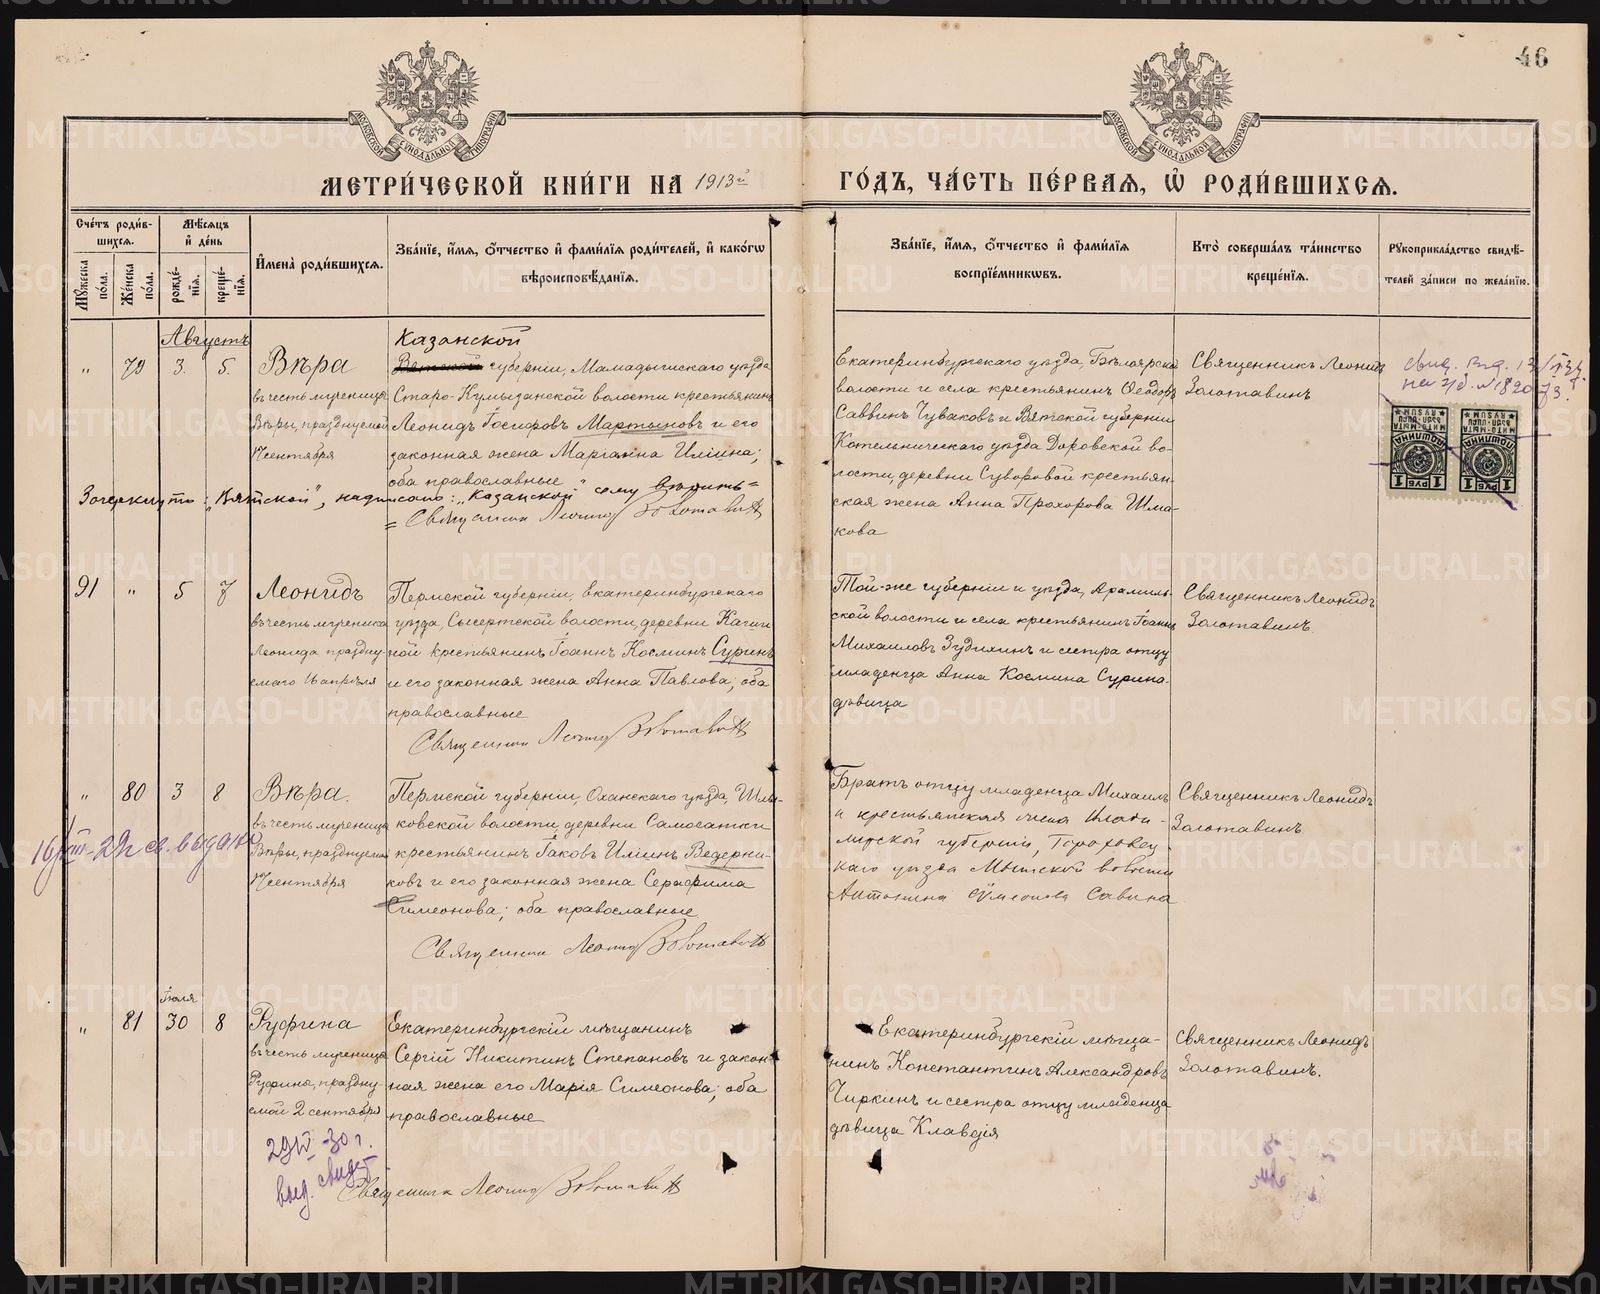 46
МОСКОВСКОЙ СѴНОДАЛЬНОЙ ТИПОГРАФІИ
МОСКОВСКОЙ СѴНОДАЛЬНОЙ ТИПОГРАФІИ
МЕТРИ́ЧЕСКОЙ КНИ́ГИ НА 1913й
ГО́ДЪ, ЧА́СТЬ ПЕ́РВАЯ, Ѡ҆ РОДИ́ВШИХСЯ.
Сче́тъ роди́вшихся.
Му́жеска по́ла.
Же́нска по́ла.
Мѣ́сяцъ и҆ де́нь
рожде́нія.
креще́нія.
И҆мена̀ роди́вшихся.
Зва́ніе, и҆́мя, ѻ҆́тчество и҆ фами́лія роди́телей, и҆ како́гѡ
вѣроисповѣ́данія.
Зва́ніе, и҆́мя, ѻ҆́тчество и҆ фами́лія
воспріе́мникѡвъ.
Кто̀ соверша́лъ та́инство
креще́нія.
Рꙋкоприкла́дство свидѣ́-
телей за́писи по жела́нію.
Августъ
"
79
3.
5.
Вѣра
въ честь мученицы
Вѣры, празднуемой
17 сентября
Казанской
Вятской губерніи, Мамадышскаго уѣзда
Старо-Кумызанской волости крестьянинъ
Леонидъ Іосифовъ Мартыновъ и его
законная жена Маріамна Иліина;
оба православные
Зачеркнуто: "Вятской", надписано: "Казанской" сему вѣрить =
= Священникъ Леонид Золотавин
Екатеринбургскаго уѣзда, Бѣлоярской
волости и села крестьянинъ Ѳеодоръ
Саввинъ Чуваковъ и Вятской губерніи
Котельническаго уѣзда Даровской во-
лости, деревни Суворовой крестьян-
ская жена Анна Прохорова Шма-
кова
Священникъ Леонидъ
Золотавинъ
1 РУБ 1
ПОШЛИНА
1 РУБ 1
ПОШЛИНА
91
"
5
7
Леонидъ
въ честь мученика
Леонида праздну-
емаго 16 апрѣля
Пермской губерніи, Екатеринбургскаго
уѣзда, Сысертской волости, деревни Кагин-
ной крестьянинъ Іоаннъ Косминъ Суринъ
и его законная жена Анна Павлова; оба
православные
Священник Леонид Золотавин
Той-же губерніи и уѣзда, Арамиль-
ской волости и села крестьянинъ Іоаннъ
Михаиловъ Зудихинъ и сестра отцу
младенца Анна Космина Сурина-
дѣвица
Священникъ Леонидъ
Золотавинъ
"
80
3
8
Вѣра.
въ честь мученицы
Вѣры, празднуемой
17 сентября
св. выдано
Пермской губерніи, Оханскаго уѣзда, Шлы-
ковской волости, деревни Самосатки
крестьянинъ Іаковъ Иліинъ Ведерни-
ковъ и его законная жена Серафима
Симеонова; оба православные
Священник Леонид Золотавин
Братъ отцу младенца Михаилъ
и крестьянская жена Влади-
мірской губерніи, Гороховец-
каго уѣзда Мытской волости
Антонина Сѵмеонова Савина
Священникъ Леонидъ
Золотавинъ
Іюля
"
81
30
8
Руфина
въ честь мученицы
Руфины, праздну-
емой 2 сентября
29/IV-30 г.
выд. свидет.
Екатеринбургскій мѣщанинъ
Сергій Никитинъ Степановъ и закон-
ная жена его Марія Симеонова; оба
православные
Священникъ Леонид Золотавин
Екатеринбургскій мѣща-
нинъ Константинъ Александровъ
Чиркинъ и сестра отцу младенца
дѣвица Клавдія
Священникъ Леонидъ
Золотавинъ.
METRIKI.GASO-URAL.RU